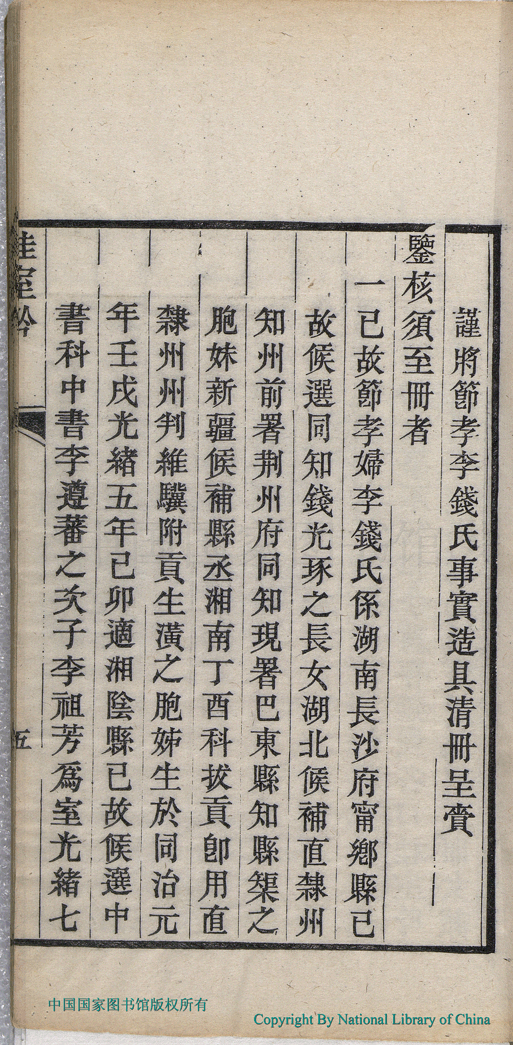 謹將節孝李錢氏事實造具清冊呈賫
鑒核須至冊者
一已故節孝婦李錢氏係湖南長沙府甯鄉縣已
故候選同知錢光琢之長女湖北候補直隸州
知州前署荆州府同知現署巴東縣知縣榘之
胞妹新疆候補縣丞湘南丁酉科拔貢卽用直
隸州州判維驥附貢生潢之胞姊生於同治元
年壬戌光緒五年己卯適湘陰縣已故候選中
書科中書李遵蕃之次子李祖芳爲室光緒七
五
中国国家图书馆版权所有
Copyright By National Library of China